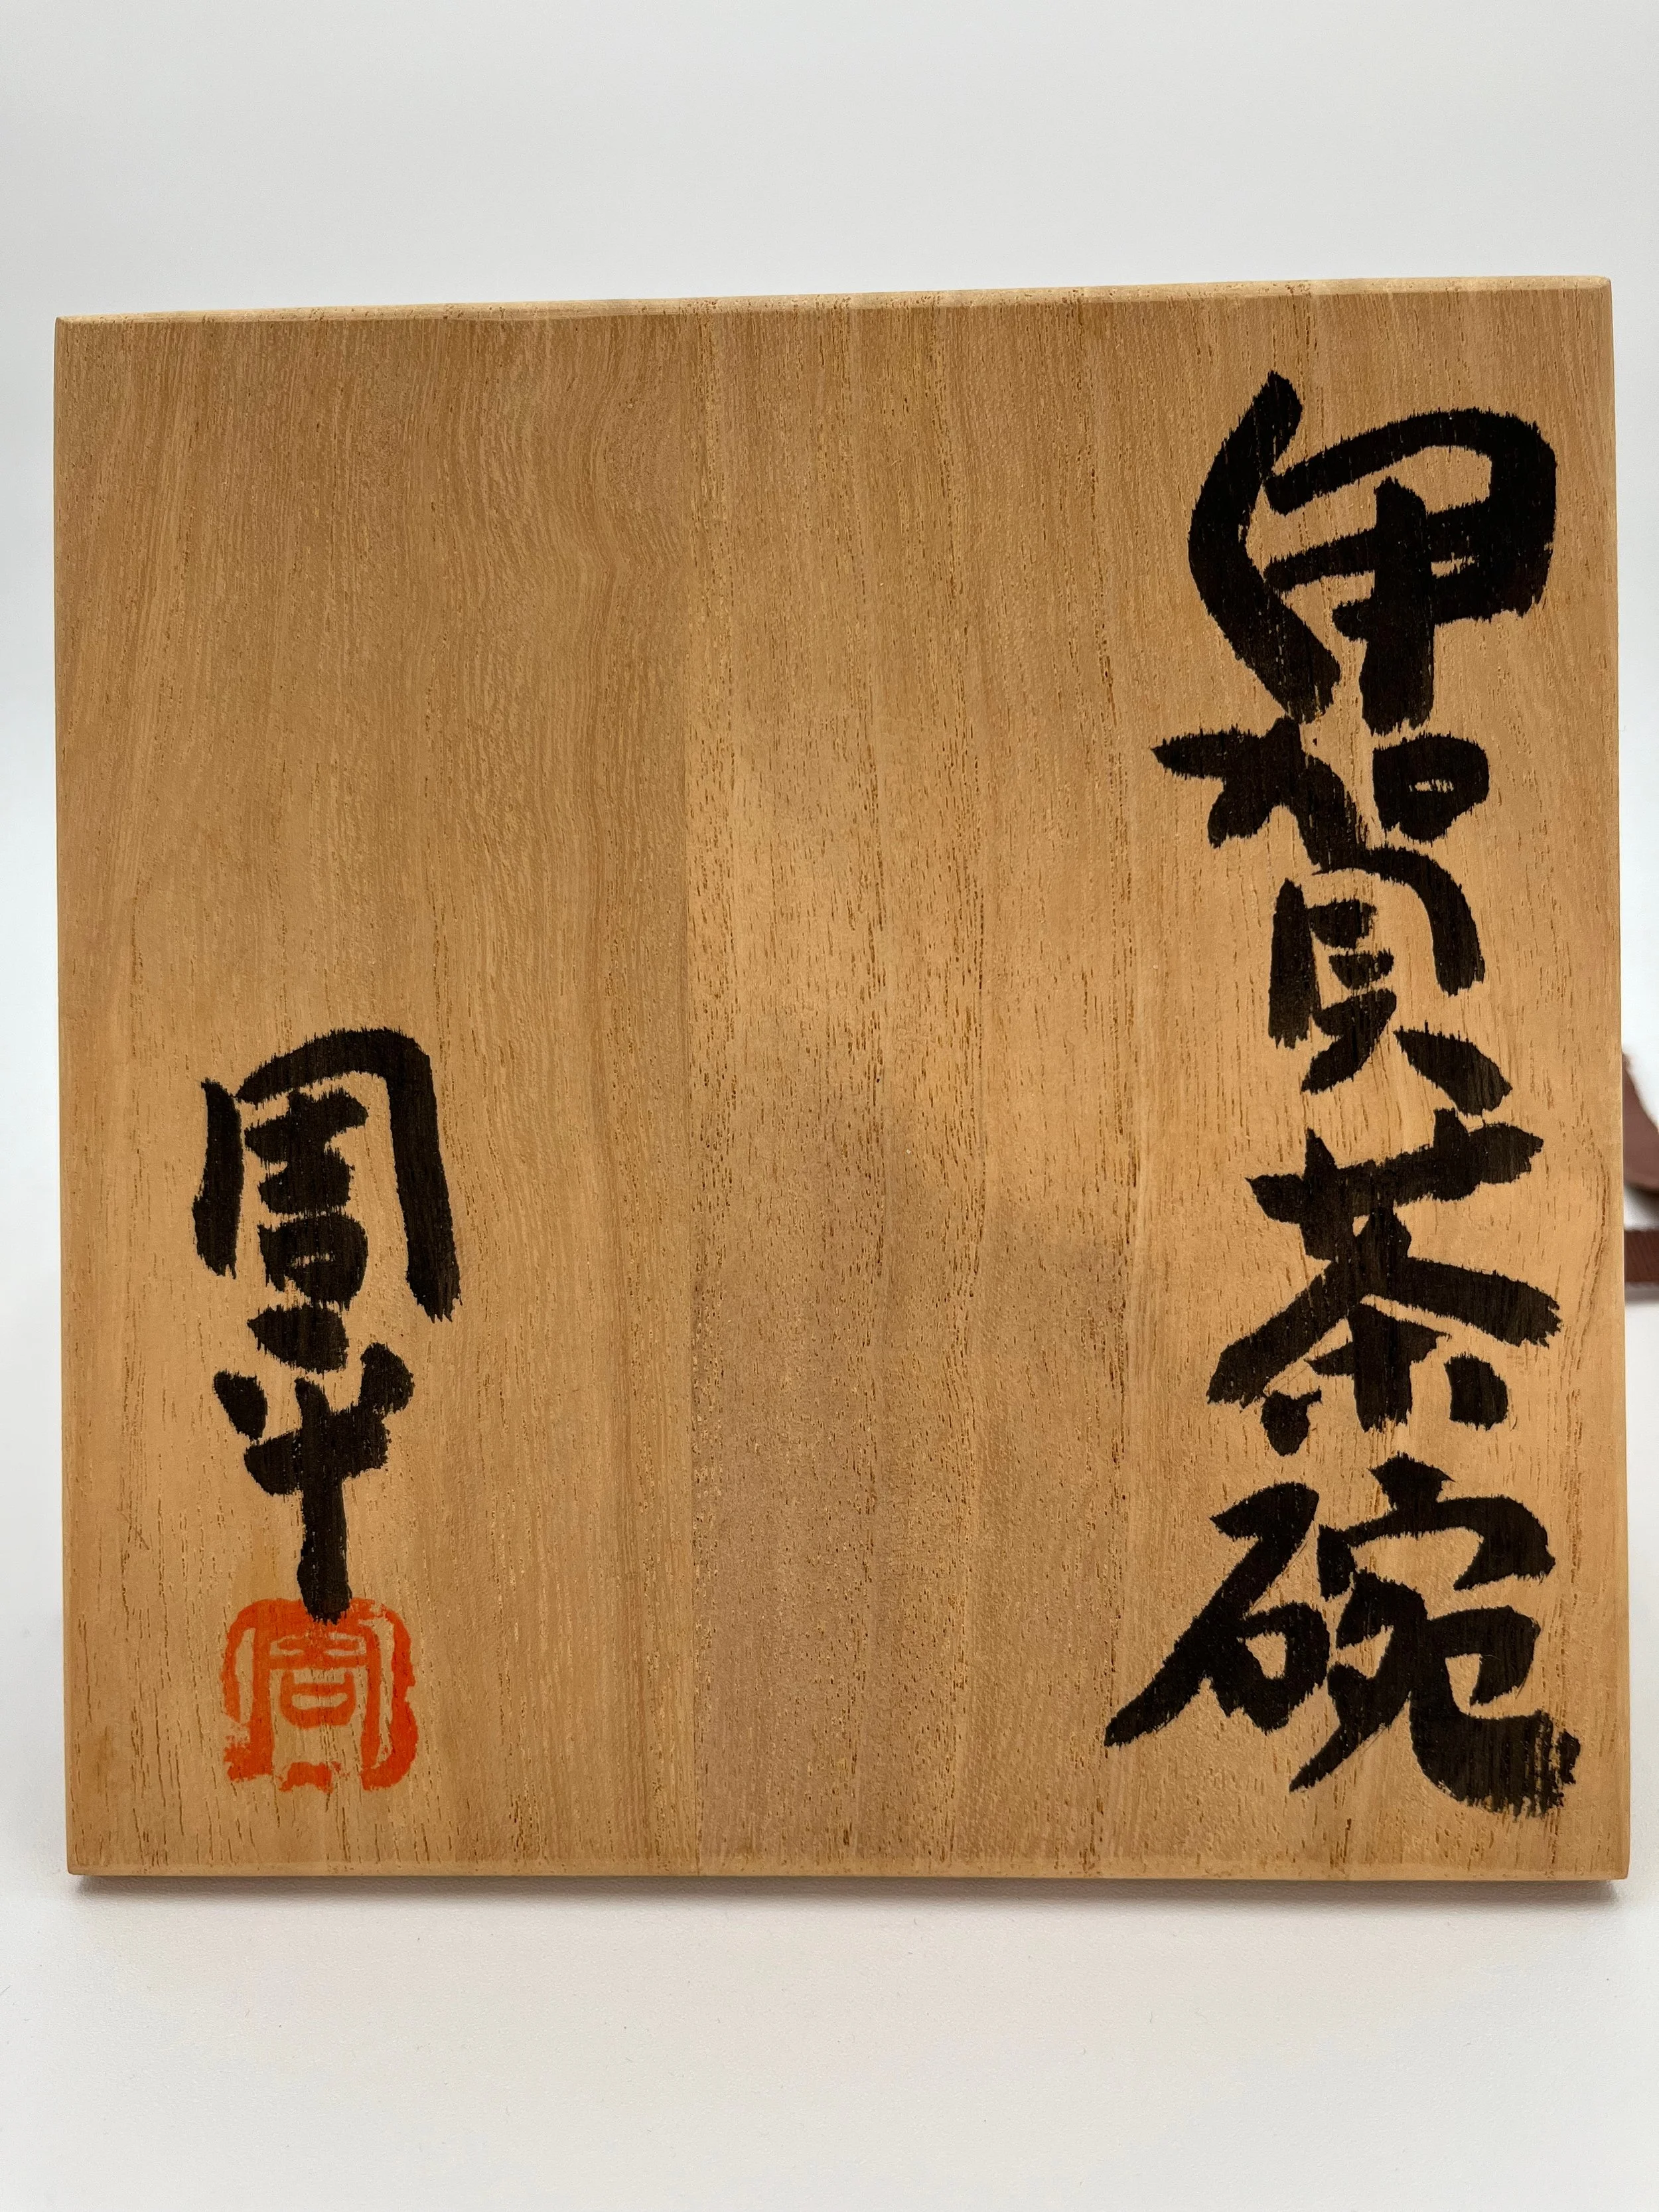 伊賀茶碗
周平
周